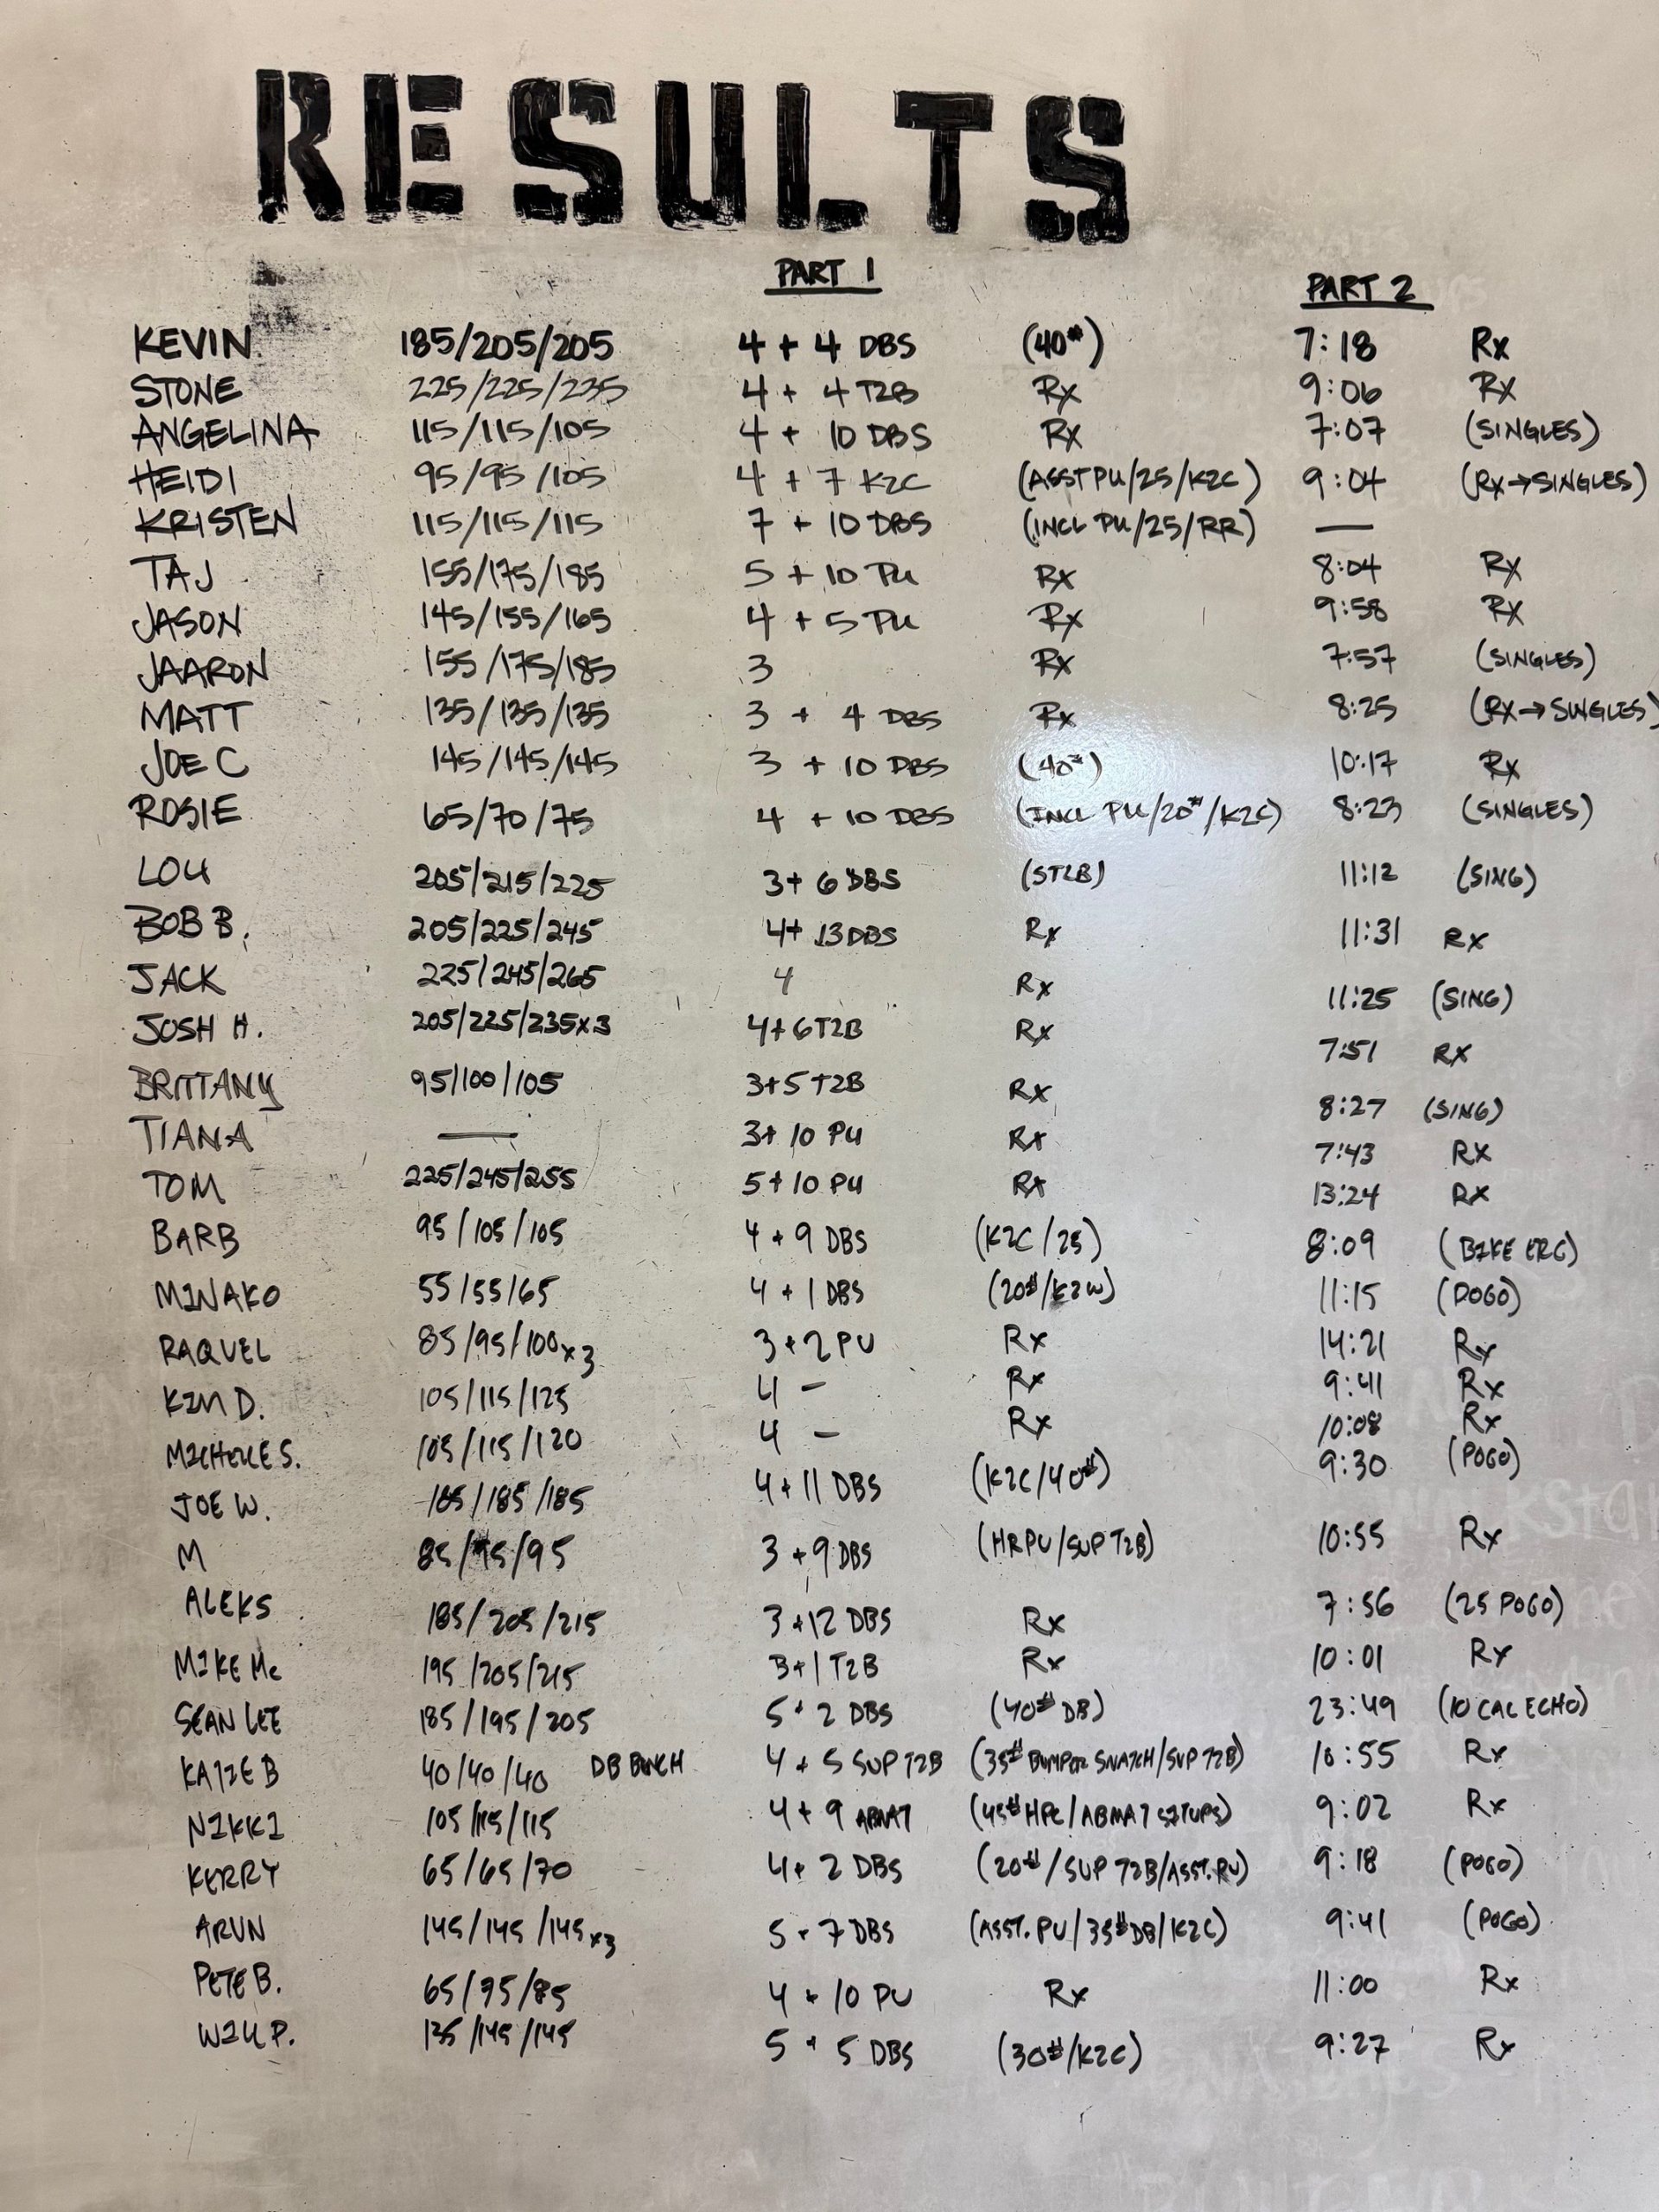 RESULTS
PART 1 PART 2
KEVIN 185/205/205 4 + 4 DBS (40#) 7:18 Rx
STONE 225/225/235 4 + 4 T2B Rx 9:06 Rx
ANGELINA 115/115/105 4 + 10 DBS Rx 7:07 (SINGLES)
HEIDI 95/95/105 4 + 7 K2C (ASST PU/25/K2C) 9:04 (Rx→SINGLES)
KRISTEN 115/115/115 7 + 10 DBS (INCL PU/25/RR) —
TAJ 155/175/185 5 + 10 PU Rx 8:04 Rx
JASON 145/155/165 4 + 5 PU Rx 9:58 Rx
JAARON 155/175/185 3 Rx 7:57 (SINGLES)
MATT 135/135/135 3 + 4 DBS Rx 8:25 (Rx→SINGLES)
JOE C 145/145/145 3 + 10 DBS (40#) 10:17 Rx
ROSIE 65/70/75 4 + 10 DBS (INCL PU/20#/K2C) 8:23 (SINGLES)
LOU 205/215/225 3+ 6 DBS (ST2B) 11:12 (SING)
BOB B. 205/225/245 4+ 13 DBS Rx 11:31 Rx
JACK 225/245/265 4 Rx 11:25 (SING)
JOSH H. 205/225/235x3 4+6 T2B Rx 7:51 Rx
BRITTANY 95/100/105 3+5 T2B Rx 8:27 (SING)
TIANA — 3+ 10 PU Rx 7:43 Rx
TOM 225/245/255 5+10 PU Rx 13:24 Rx
BARB 95/105/105 4 + 9 DBS (K2C/25) 8:09 (BIKE ERG)
MINAKO 55/55/65 4 + 1 DBS (20#/K2W) 11:15 (POGO)
RAQUEL 85/95/100x3 3+2 PU Rx 14:21 Rx
KIM D. 105/115/125 4 — Rx 9:41 Rx
MICHELLE S. 105/115/120 4 — Rx 10:08 Rx
JOE W. /185/185 4+11 DBS (K2C/40#) 9:30 (POGO)
M 85/ /95 3+9 DBS (HRPU/SUP T2B) 10:55 Rx
ALEKS 185/205/215 3+12 DBS Rx 7:56 (25 POGO)
MIKE Mc 195/205/215 3+1 T2B Rx 10:01 Rx
SEAN LEE 185/195/205 5+ 2 DBS (40# DB) 23:49 (10 CAL ECHO)
KATIE B 40/40/40 DB BENCH 4 + 5 SUP T2B (35# BUMPER SNATCH/SUP T2B) 10:55 Rx
NIKKI 105/115/115 4 + 9 ABMAT (45# HPC/ABMAT SITUPS) 9:02 Rx
KERRY 65/65/70 4+ 2 DBS (20#/SUP T2B/ASST. PU) 9:18 (POGO)
ARUN 145/145/145x3 5 + 7 DBS (ASST. PU/35# DB/K2C) 9:41 (POGO)
PETE B. 65/75/85 4 + 10 PU Rx 11:00 Rx
WILL P. 135/145/145 5 + 5 DBS (30#/K2C) 9:27 Rx